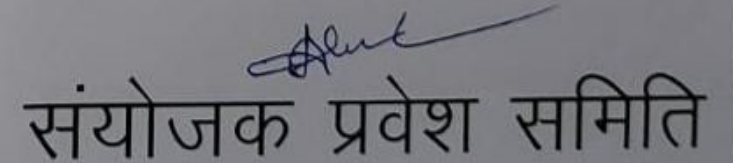 संयोजक प्रवेश समिति